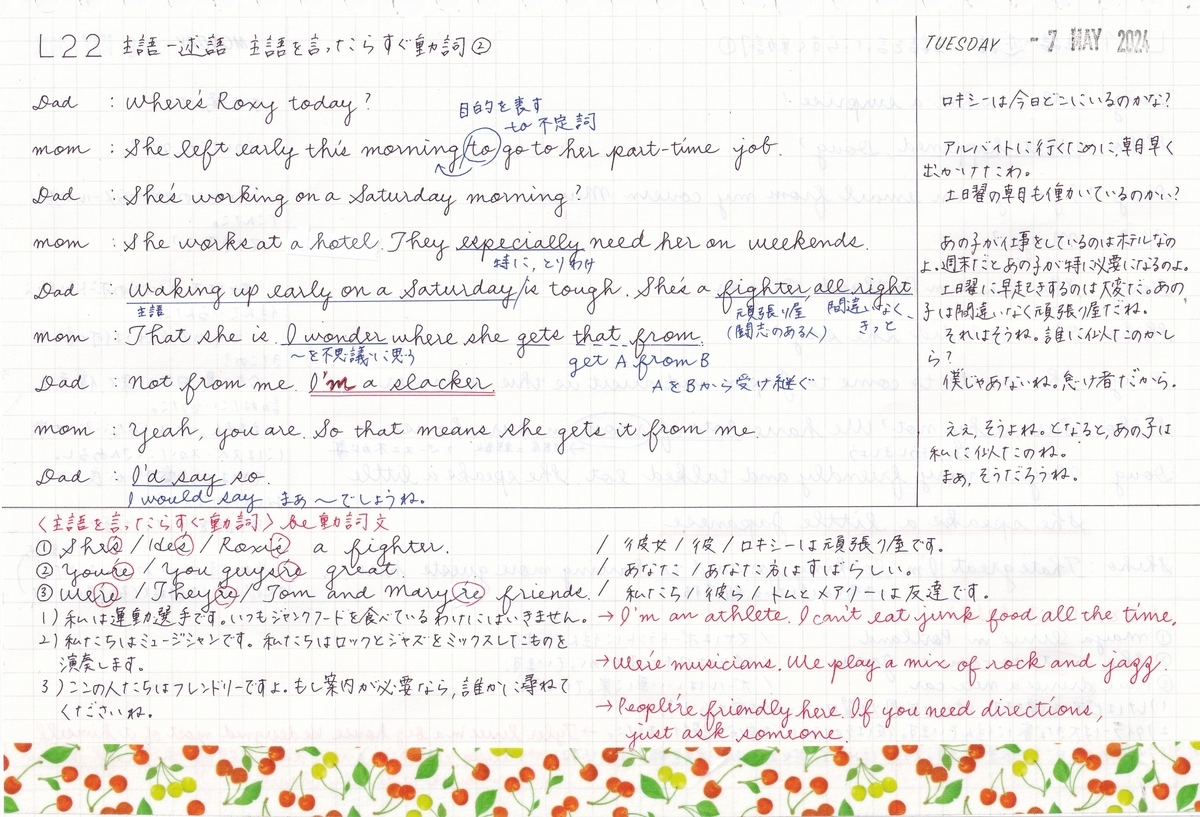 L22 主語－述語 主語を言ったらすぐ動詞②
TUESDAY - 7 MAY 2024
Dad : Where's Roxy today?
ロキシーは今日どこにいるのかな?
目的を表す
to 不定詞
mom : She left early this morning / to go to her part-time job.
アルバイトに行くために、朝早く
出かけたわ。
Dad : She's working on a Saturday morning?
土曜の朝も働いているのかい?
mom : She works at a hotel. They especially need her on weekends.
特に, とりわけ
あの子が仕事をしているのはホテルなの
よ。週末だとあの子が特に必要になるのよ。
Dad : Waking up early on a Saturday / is tough. She's a fighter all right
主語
頑張り屋
(闘志のある人)
間違いなく、
きっと
土曜に早起きするのは大変だ。あの
子は間違いなく頑張り屋だね。
mom : That she is. I wonder where she gets that from.
〜を不思議に思う
get A from B
AをBから受け継ぐ
それはそうね。誰に似たのかし
ら?
Dad : Not from me. I'm a slacker.
僕じゃあないね。怠け者だから。
mom : Yeah, you are. So that means she gets it from me.
ええ, そうよね。となると, あの子は
私に似たのね。
Dad : I'd say so.
I would say まぁ〜でしょうね。
まぁ, そうだろうね。
〈主語を言ったらすぐ動詞〉 be動詞文
① She's / He's / Roxy's a fighter. / 彼女 / 彼 / ロキシーは頑張り屋です。
② You're / You guys're great. / あなた / あなた方はすばらしい。
③ We're / They're / Tom and Mary're friends. / 私たち / 彼ら / トムとメアリーは友達です。
1) 私は運動選手です。いつもジャンクフードを食べているわけにはいきません。
→ I'm an athlete. I can't eat junk food all the time.
2) 私たちはミュージシャンです。私たちはロックとジャズをミックスしたものを
演奏します。
→ We're musicians. We play a mix of rock and jazz.
3) ここの人たちはフレンドリーですよ。もし案内が必要なら, 誰かに尋ねて
くださいね。
→ People're friendly here. If you need directions,
just ask someone.